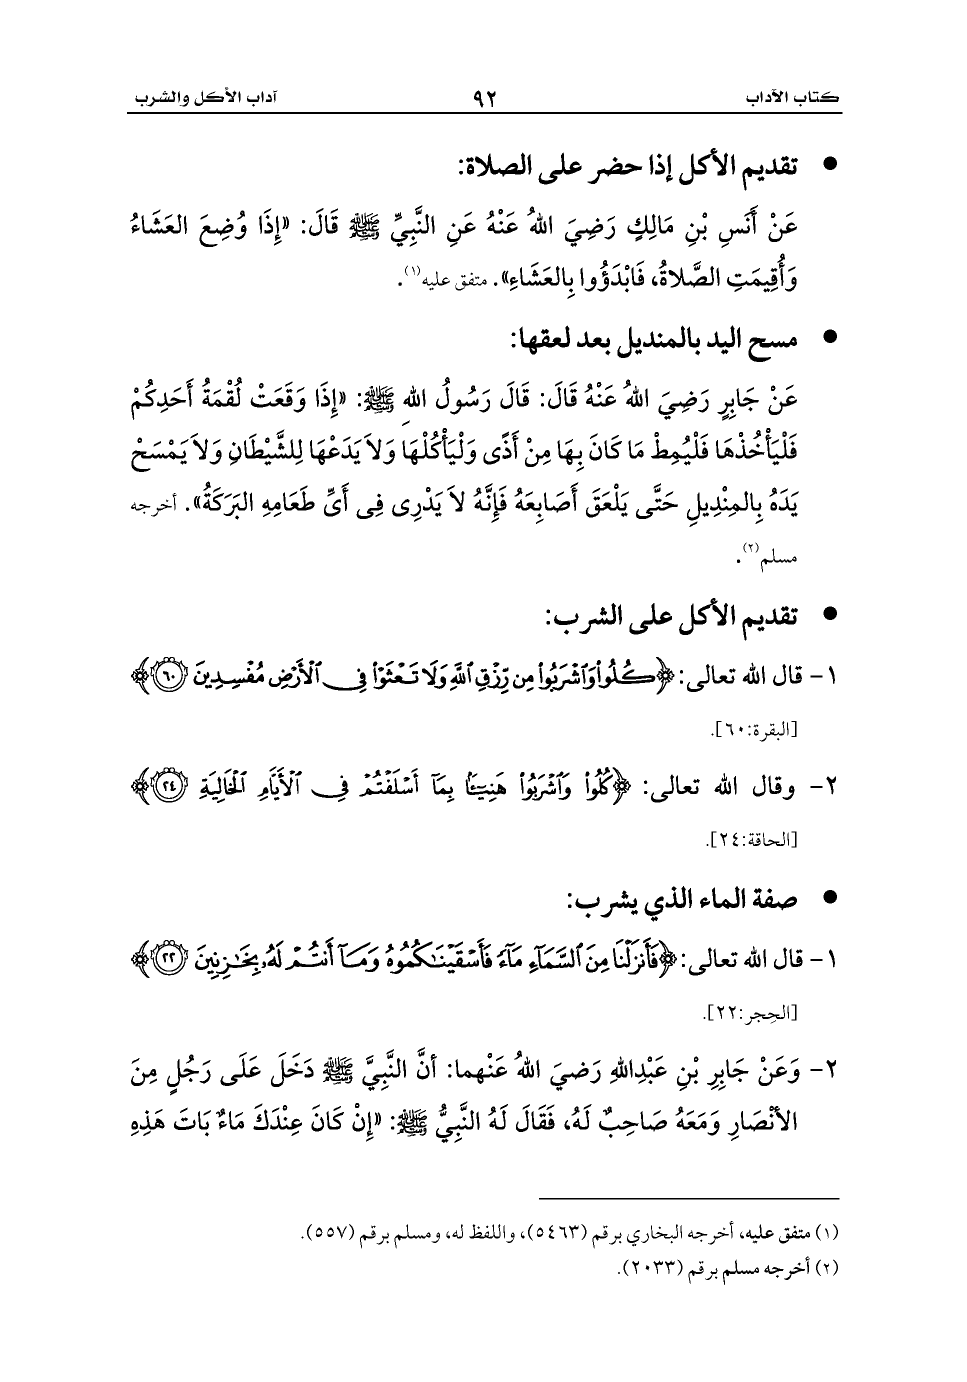 كتاب الآداب ٩٢ آداب الأكل والشرب
• تقديم الأكل إذا حضر على الصلاة:
عَنْ أَنَسِ بْنِ مَالِكٍ رَضِيَ اللهُ عَنْهُ عَنِ النَّبِيِّ ﷺ قَالَ: «إِذَا وُضِعَ العَشَاءُ
وَأُقِيمَتِ الصَّلاةُ، فَابْدَؤُوا بِالعَشَاءِ». متفق عليه(١).
• مسح اليد بالمنديل بعد لعقها:
عَنْ جَابِرٍ رَضِيَ اللهُ عَنْهُ قَالَ: قَالَ رَسُولُ اللهِ ﷺ: «إِذَا وَقَعَتْ لُقْمَةُ أَحَدِكُمْ
فَلْيَأْخُذْهَا فَلْيُمِطْ مَا كَانَ بِهَا مِنْ أَذًى وَلْيَأْكُلْهَا وَلاَ يَدَعْهَا لِلشَّيْطَانِ وَلاَ يَمْسَحْ
يَدَهُ بِالمِنْدِيلِ حَتَّى يَلْعَقَ أَصَابِعَهُ فَإِنَّهُ لاَ يَدْرِى فِى أَىِّ طَعَامِهِ البَرَكَةُ». أخرجه
مسلم(٢).
• تقديم الأكل على الشرب:
١- قال الله تعالى: ﴿كُلُوا۟ وَٱشْرَبُوا۟ مِن رِّزْقِ ٱللَّهِ وَلَا تَعْثَوْا۟ فِى ٱلْأَرْضِ مُفْسِدِينَ ٦٠﴾
[البقرة:٦٠].
٢- وقال الله تعالى: ﴿كُلُوا۟ وَٱشْرَبُوا۟ هَنِيٓـَٔۢا بِمَآ أَسْلَفْتُمْ فِى ٱلْأَيَّامِ ٱلْخَالِيَةِ ٢٤﴾
[الحاقة:٢٤].
• صفة الماء الذي يشرب:
١- قال الله تعالى: ﴿فَأَنزَلْنَا مِنَ ٱلسَّمَآءِ مَآءً فَأَسْقَيْنَٰكُمُوهُ وَمَآ أَنتُمْ لَهُۥ بِخَٰزِنِينَ ٢٢﴾
[الحِجر:٢٢].
٢- وَعَنْ جَابِرِ بْنِ عَبْدِاللهِ رَضِيَ اللهُ عَنْهما: أنَّ النَّبِيَّ ﷺ دَخَلَ عَلَى رَجُلٍ مِنَ
الأنْصَارِ وَمَعَهُ صَاحِبٌ لَهُ، فَقَالَ لَهُ النَّبِيُّ ﷺ: «إِنْ كَانَ عِنْدَكَ مَاءٌ بَاتَ هَذِهِ
(١) متفق عليه، أخرجه البخاري برقم (٥٤٦٣)، واللفظ له، ومسلم برقم (٥٥٧).
(٢) أخرجه مسلم برقم (٢٠٣٣).